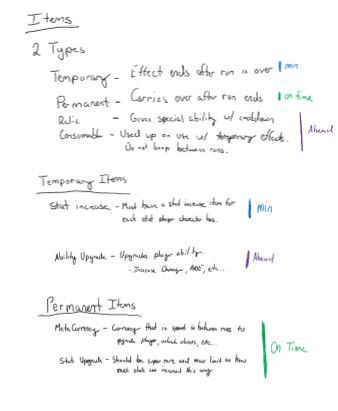 Items
2 Types
Temporary - Effect ends after run is over | min
Permanent - Carries over after run ends | on time
Relic - Gives special ability w/ cooldown
Consumable - Used up on use w/ temporary effects. | Ahead
Do not keep between runs.
Temporary Items
Stat increase - Must have a stat increase item for | min
each stat player character has.
Ability Upgrade - Upgrades player ability | Ahead
- Increase Damage, AOE, etc...
Permanent Items
Meta Currency - Currency that is spent in between runs to
upgrade player, unlock classes, etc...
On Time
Stat Upgrade - Should be super rare and have limit on how
much stats can increase this way